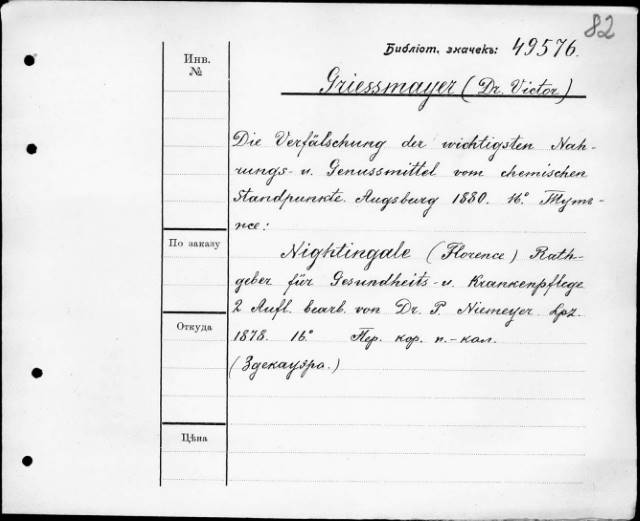 82
Библіот. значекъ: 49576.
Инв.
№
Griessmayer (Dr. Victor)
Die Verfälschung der wichtigsten Nah-
rungs- u. Genussmittel vom chemischen
Standpunkte. Augsburg 1880. 16.° Тутъ-
же:
По заказу
Nightingale (Florence) Rath-
geber für Gesundheits- u. Krankenpflege
2 Aufl. bearb. von Dr. P. Niemeyer. Lpz.
Откуда
1878. 16° Пер. кор. п.-кал.
(Здекауэра.)
Цѣна